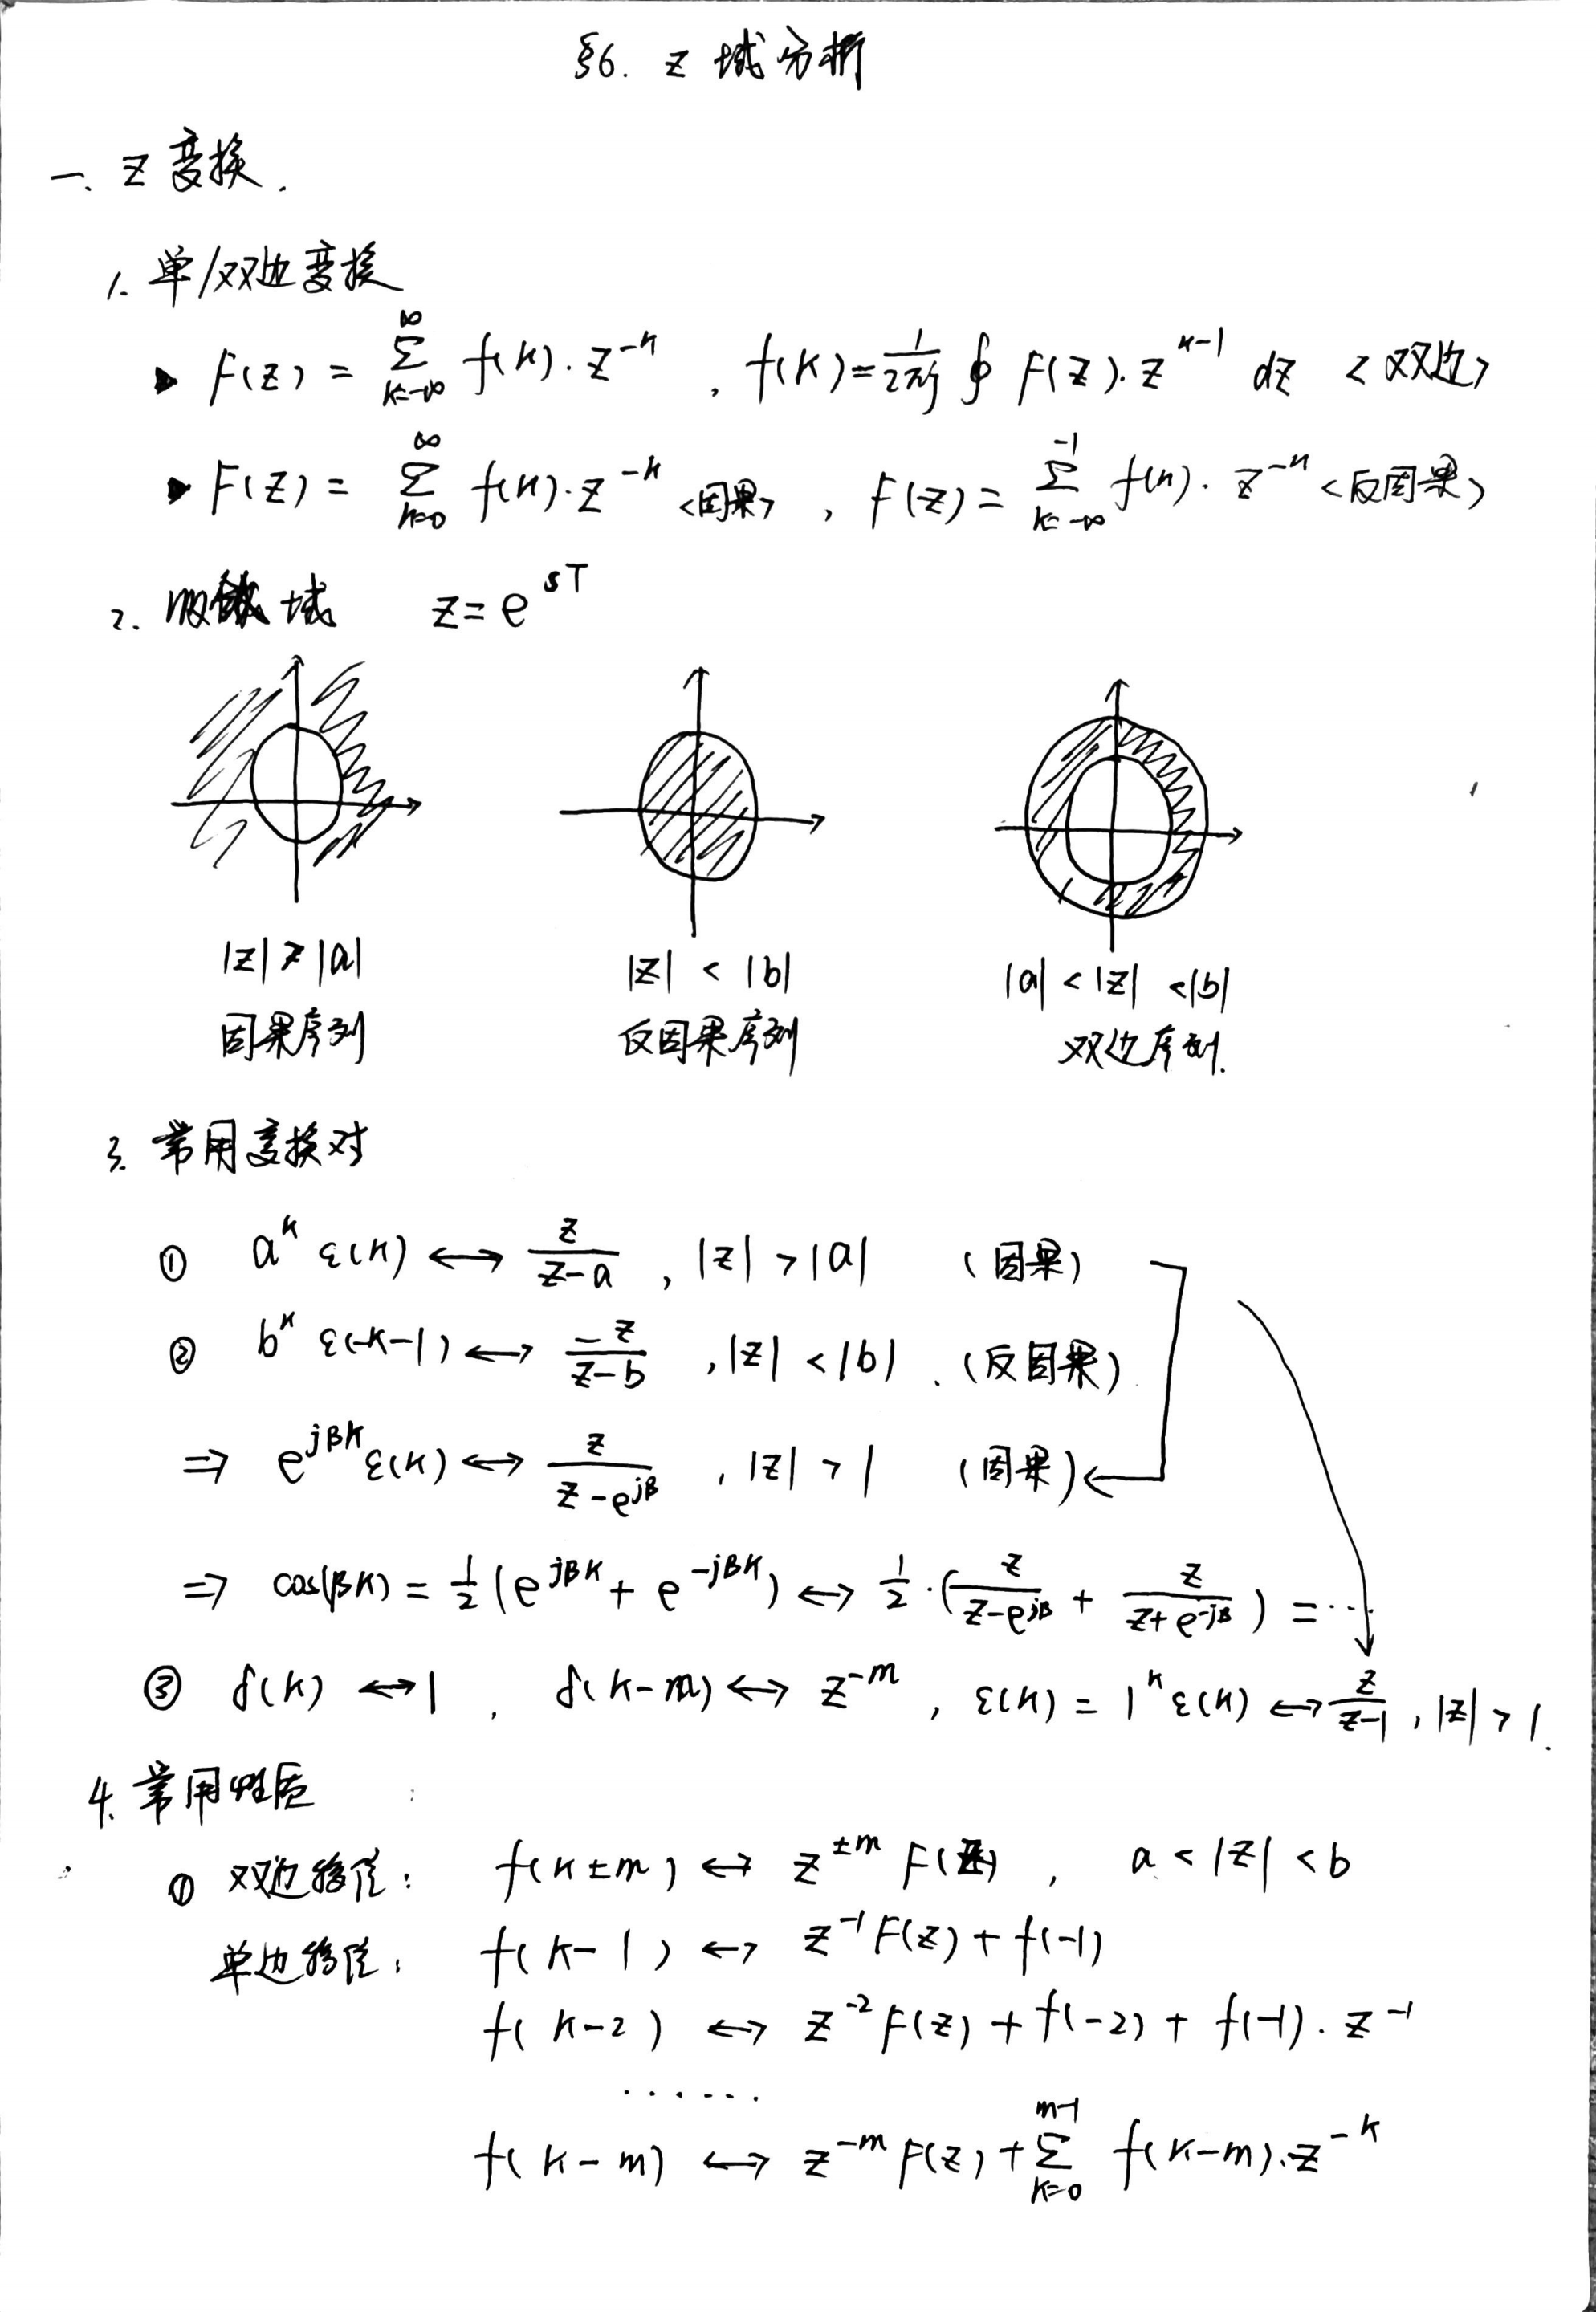 §6. Z 域分析
一. Z 变换.
1. 单/双边变换
▸ F(z) = ∑_{k=-∞}^{∞} f(k)·z^{-k} , f(k) = \frac{1}{2πj} ∮ F(z)·z^{k-1} dz <双边>
▸ F(z) = ∑_{k=0}^{∞} f(k)·z^{-k} <因果> , F(z) = ∑_{k=-∞}^{-1} f(k)·z^{-k} <反因果>
2. 收敛域 z = e^{sT}
|z| > |a| |z| < |b| |a| < |z| < |b|
因果序列 反因果序列 双边序列.
3. 常用变换对
① a^k ε(k) ↔ \frac{z}{z-a} , |z| > |a| (因果)
② b^k ε(-k-1) ↔ \frac{-z}{z-b} , |z| < |b| . (反因果)
⇒ e^{jβk} ε(k) ↔ \frac{z}{z-e^{jβ}} , |z| > 1 (因果)
⇒ cos(βk) = \frac{1}{2} (e^{jβk} + e^{-jβk}) ↔ \frac{1}{2}·(\frac{z}{z-e^{jβ}} + \frac{z}{z+e^{-jβ}}) = ...
③ δ(k) ↔ 1 , δ(k-m) ↔ z^{-m} , ε(k) = 1^k ε(k) ↔ \frac{z}{z-1} , |z| > 1.
4. 常用性质
① 双边移位: f(k±m) ↔ z^{±m} F(z) , a < |z| < b
单边移位: f(k-1) ↔ z^{-1} F(z) + f(-1)
f(k-2) ↔ z^{-2} F(z) + f(-2) + f(-1)·z^{-1}
......
f(k-m) ↔ z^{-m} F(z) + ∑_{k=0}^{m-1} f(k-m)·z^{-k}